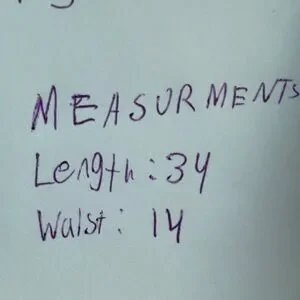 MEASURMENTS
Length: 34
Walst: 14